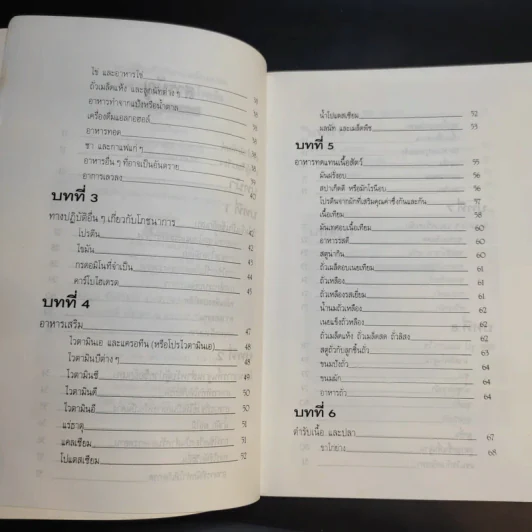 ไข่ และอาหารไข่
ถั่วเมล็ดแห้ง และลูกนัทต่าง ๆ
อาหารทำจากแป้งหรือน้ำตาล
เครื่องดื่มแอลกอฮอล์
อาหารทอด
ชา และกาแฟแก่ ๆ
อาหารอื่น ๆ ที่อาจเป็นอันตราย
อาการเลวลง
บทที่ 3
ทางปฏิบัติอื่น ๆ เกี่ยวกับโภชนาการ 42
โปรตีน 42
ไขมัน 44
กรดอมิโนที่จำเป็น
คาร์โบไฮเดรต 45
บทที่ 4
อาหารเสริม 47
ไวตามินเอ และแครอทีน (หรือโปรไวตามินเอ) 48
ไวตามินบีต่างๆ
ไวตามินซี
ไวตามินดี 50
ไวตามินอี 50
แร่ธาตุ 51
แคลเซียม 51
โปแตสเซียม 52
น้ำโปแตสเซียม 52
ผลนัท และเมล็ดพืช 53
บทที่ 5
อาหารทดแทนเนื้อสัตว์ 55
มันฝรั่งอบ 56
สปาเก็ตตี หรือมักโรนีอบ 56
57
เนื้อเทียม 58
60
อาหารรสดี 60
60
61
ถั่วเหลือง 61
61
น้ำนมถั่วเหลือง 62
เนยแข็งถั่วเหลือง 62
62
สตูถั่วกับลูกชิ้นถั่ว 63
ขนมปังถั่ว 64
ขนมผัก 64
อาหารถั่ว 64
บทที่ 6
ตำรับเนื้อ และปลา 67
ขาไก่ยาง 68